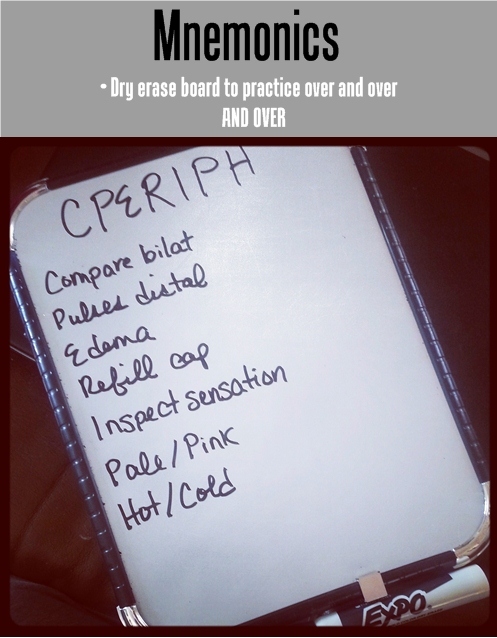 Mnemonics
• Dry erase board to practice over and over
AND OVER
CPERIPH
Compare bilat
Pulses distal
Edema
Refill cap
Inspect sensation
Pale/Pink
Hot/Cold
EXPO